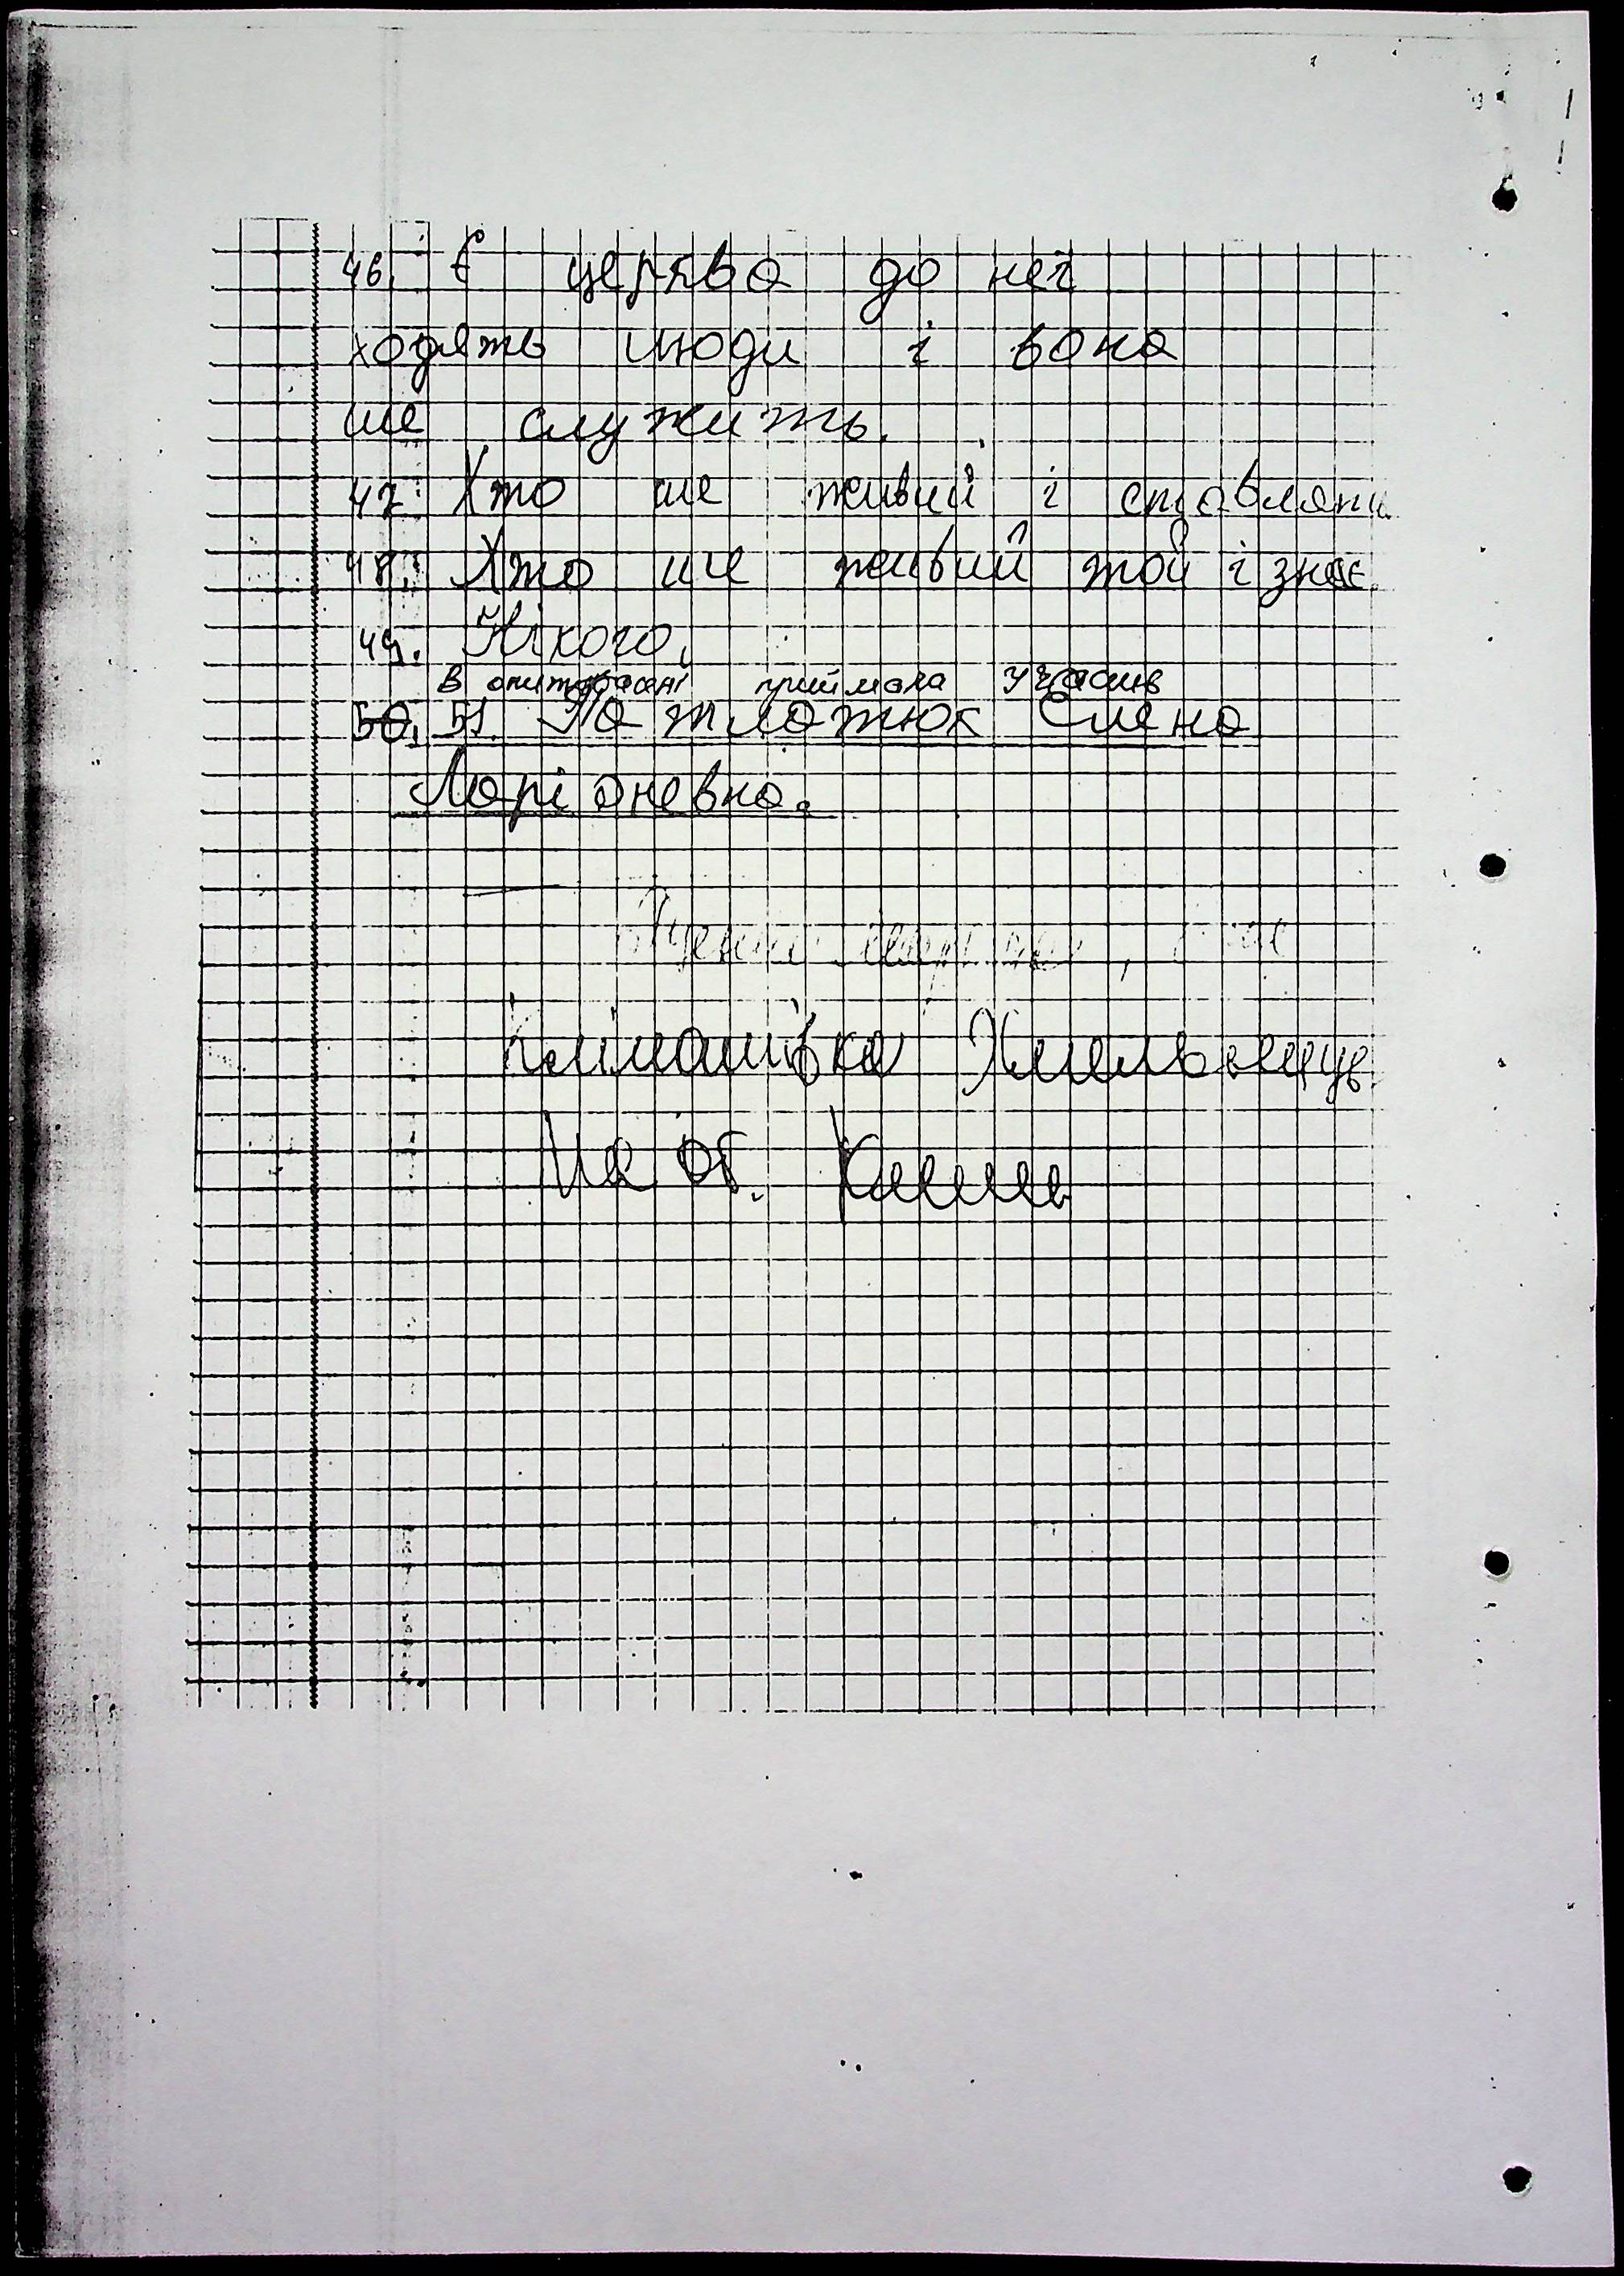 46. Є церква до неї
ходять люди і вона
ше служить.
47. Хто ше живий і ставляти
48. Хто ше живий той і знає.
49. Нікого.
в опитуванні приймала участь
50. 51. Олена
Маріанівна.
Климашівка Хмельниць
ка об.